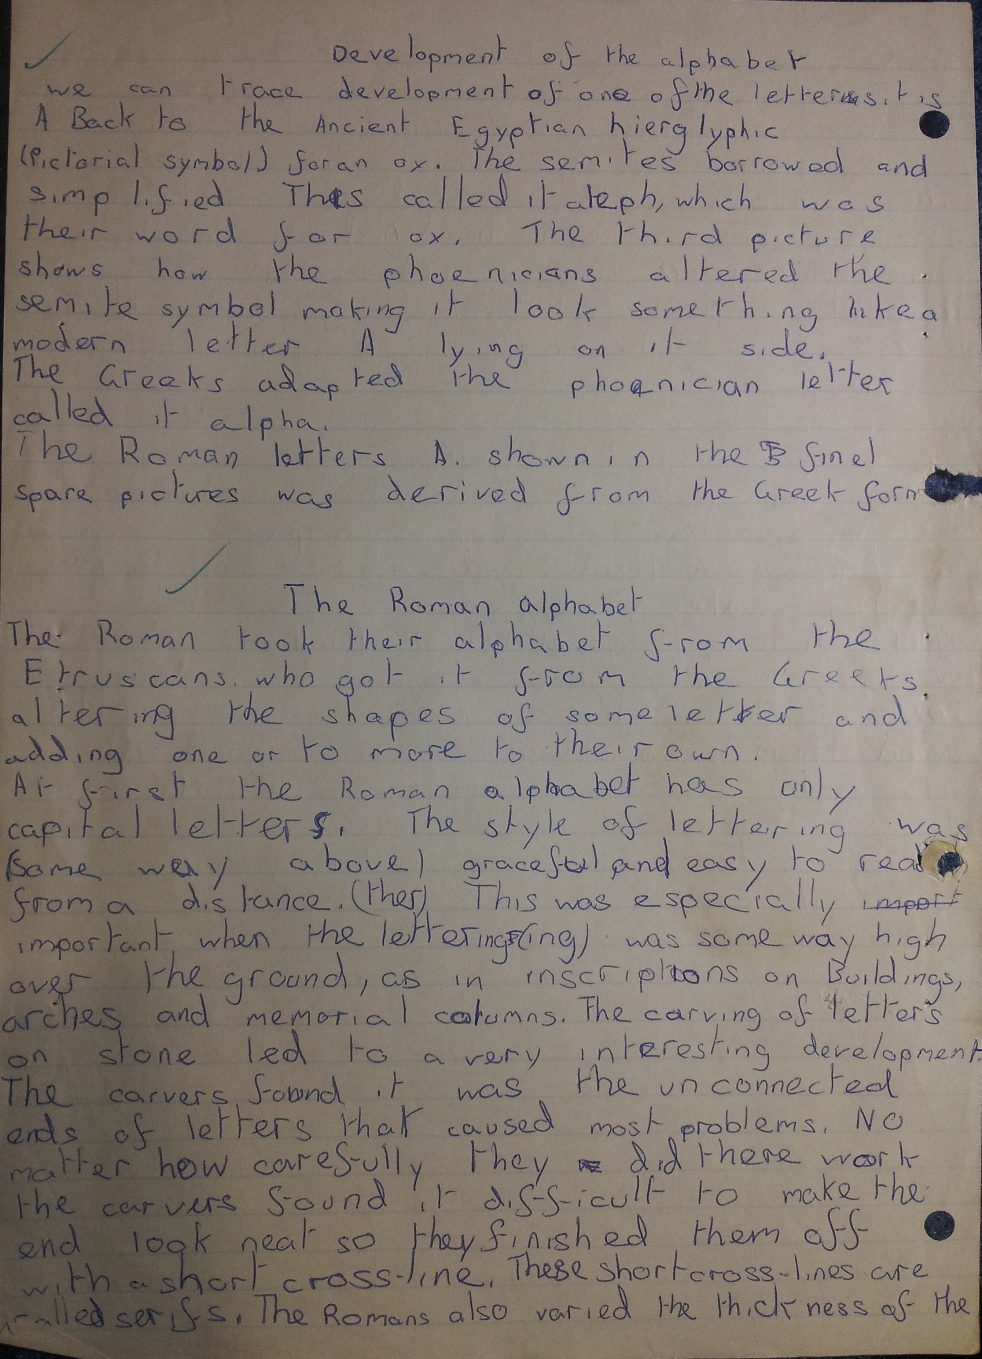 Development of the alphabet
we can trace development of one of the letters. it is
A Back to the Ancient Egyptian hierglyphic
(Pictorial symbol) for an ox. The semites borrowed and
simplified This called it aleph, which was
their word for ox. The third picture
shows how the phoenicians altered the
semite symbol making it look something like a
modern letter A lying on it side.
The Greeks adapted the phoenician letter
called it alpha.
The Roman letters A. shown in the final
spare pictures was derived from the Greek form
The Roman alphabet
The Roman took their alphabet from the
Etruscans. who got it from the Greeks.
altering the shapes of some letter and
adding one or to more to their own.
At first the Roman alphabet has only
capital letters. The style of lettering was
(some way above) graceful and easy to read
from a distance. (ther) This was especially import
important when the letterings(ing) was some way high
over the ground, as in inscriptions on Buildings,
arches and memorial columns. The carving of letters
on stone led to a very interesting development.
The carvers found it was the unconnected
ends of letters that caused most problems. NO
matter how carefully they did there work
the carvers found it difficult to make the
end look neat so they finished them off
with a short cross-line. These short cross-lines are
called serifs. The Romans also varied the thickness of the